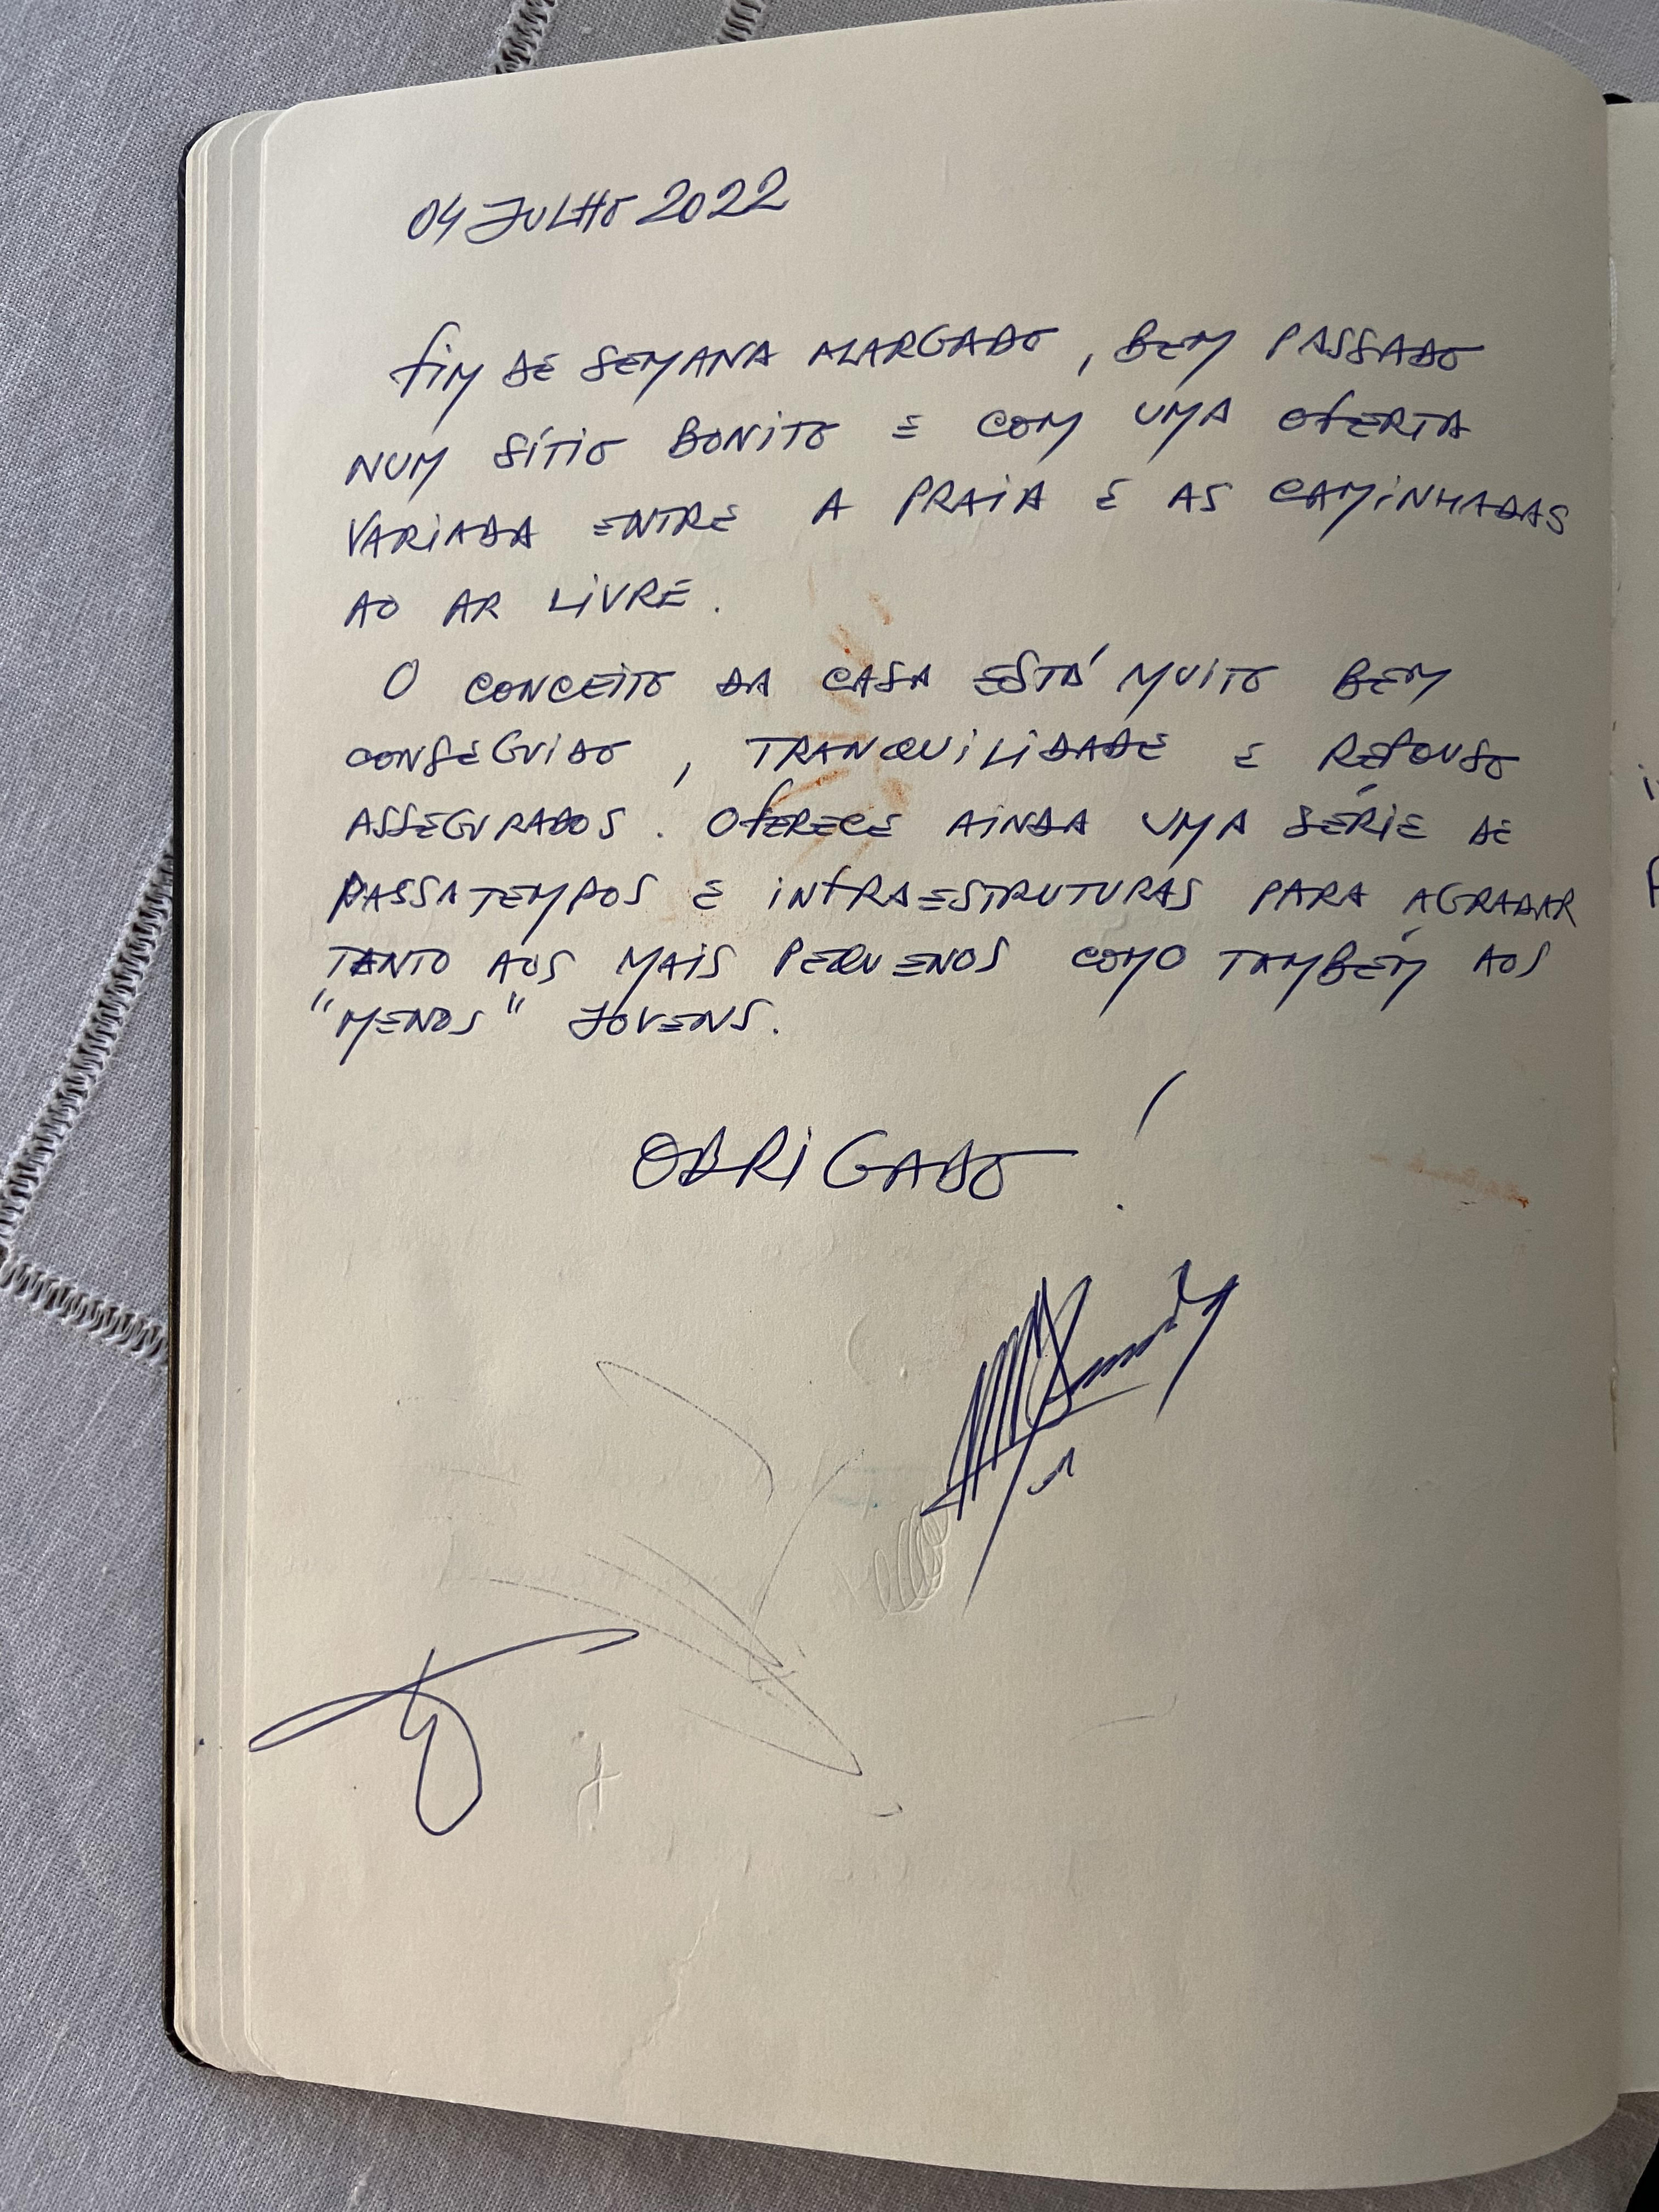 04 JULHO 2022
FIM DE SEMANA ALARGADO, BEM PASSADO
NUM SÍTIO BONITO E COM UMA OFERTA
VARIADA ENTRE A PRAIA E AS CAMINHADAS
AO AR LIVRE.
O CONCEITO DA CASA ESTÁ MUITO BEM
CONSEGUIDO, TRANQUILIDADE E REPOUSO
ASSEGURADOS. OFERECE AINDA UMA SÉRIE DE
PASSATEMPOS E INFRAESTRUTURAS PARA AGRADAR
TANTO AOS MAIS PEQUENOS COMO TAMBÉM AOS
"MENOS" JOVENS.
OBRIGADO!